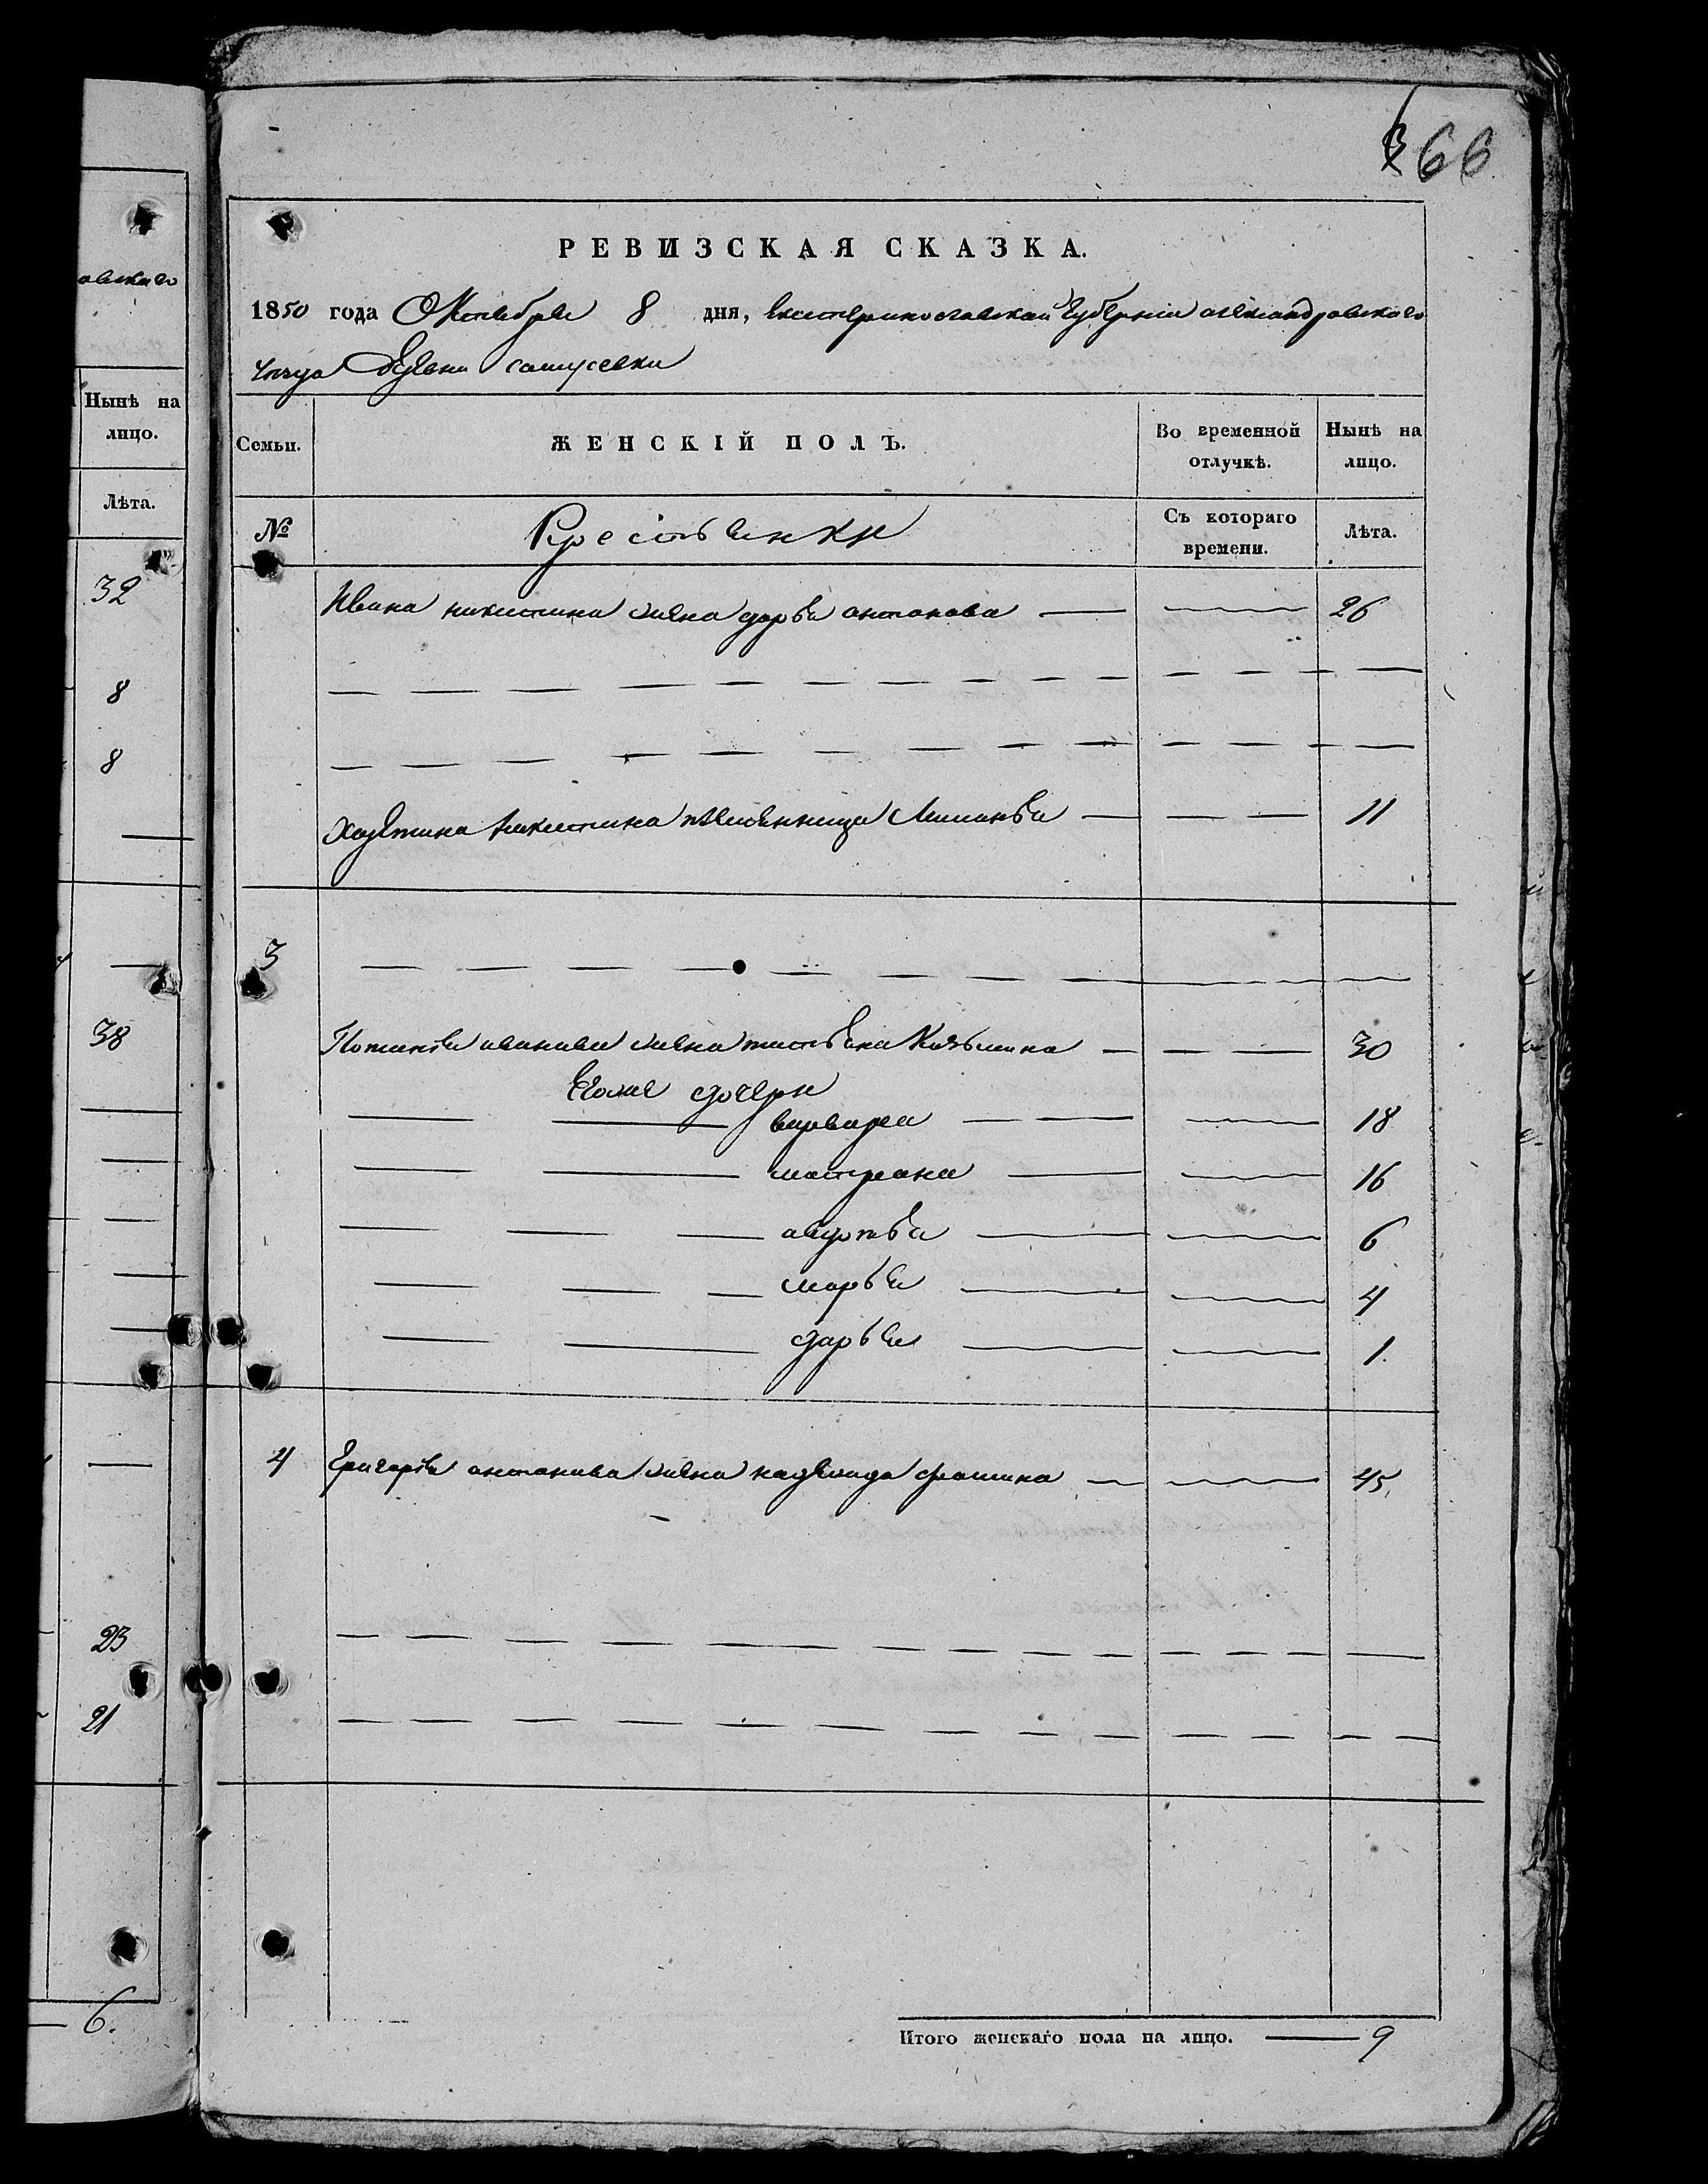 66
РЕВИЗСКАЯ СКАЗКА.
1850 года Октября 8 дня, Екатеринославской губерніи александровского
уезда деревни сашусевки
Семьи.
ЖЕНСКІЙ ПОЛЪ.
Во временной отлучкѣ.
Нынѣ на лицо.
№
Крестьянки
Съ котораго времени.
Лѣта.
Ивана никитина жена дарья антонова 26
никитина племянница 11
3
иванова жена татьяна Козьмина 30
Егоже дочери
варвара 18
матреана 16
авдотья 6
марья 4
дарья 1.
4 Григорья антонова жена надежда 45
Итого женскаго пола на лицо. 9
овскаго
Нынѣ на лицо.
Лѣта.
32
8
8
38
23
21
6.